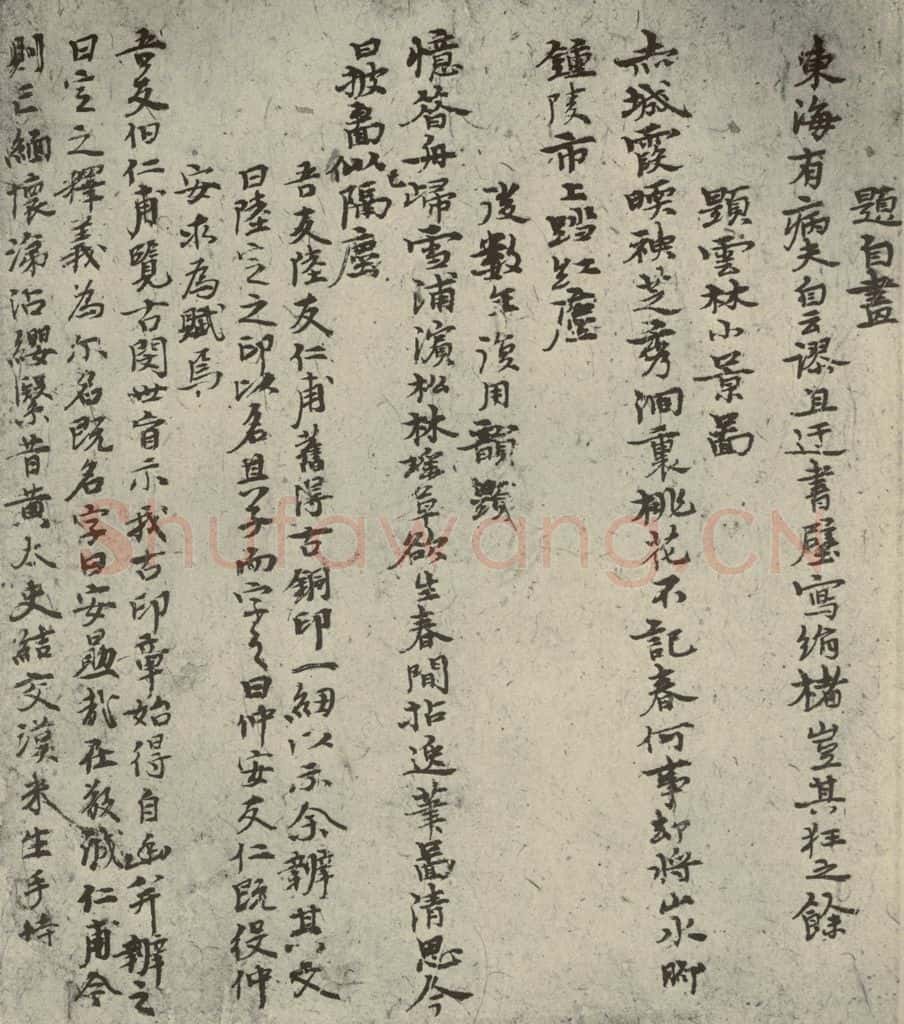 題自畫
東海有病夫自云謬且迂書壁寫絹楮豈其狂之餘
題雲林小景畫
赤城霞暎秧芝秀澗裏桃花不記春何事却將山水脚
鍾陵市上踏紅塵
後數年復用韻題
憶昝舟歸雪浦濱松林瑤草欲生春間拈逸筆畵清思今
日披畵似隔塵
吾友陸友仁甫舊得古銅印一紐以示余辦其文
曰陸定之印以名且子而字之曰仲安友仁既役仲
安求為賦焉
吾友伯仁甫覽古閔世盲示我古印章始得自幽并辦之
曰定之釋義為尔名既名字曰安勗哉在敬誠仁甫今
則亡緬懷涕沾纓繄昔黃太史結交漢米生手持
Shufawang.CN